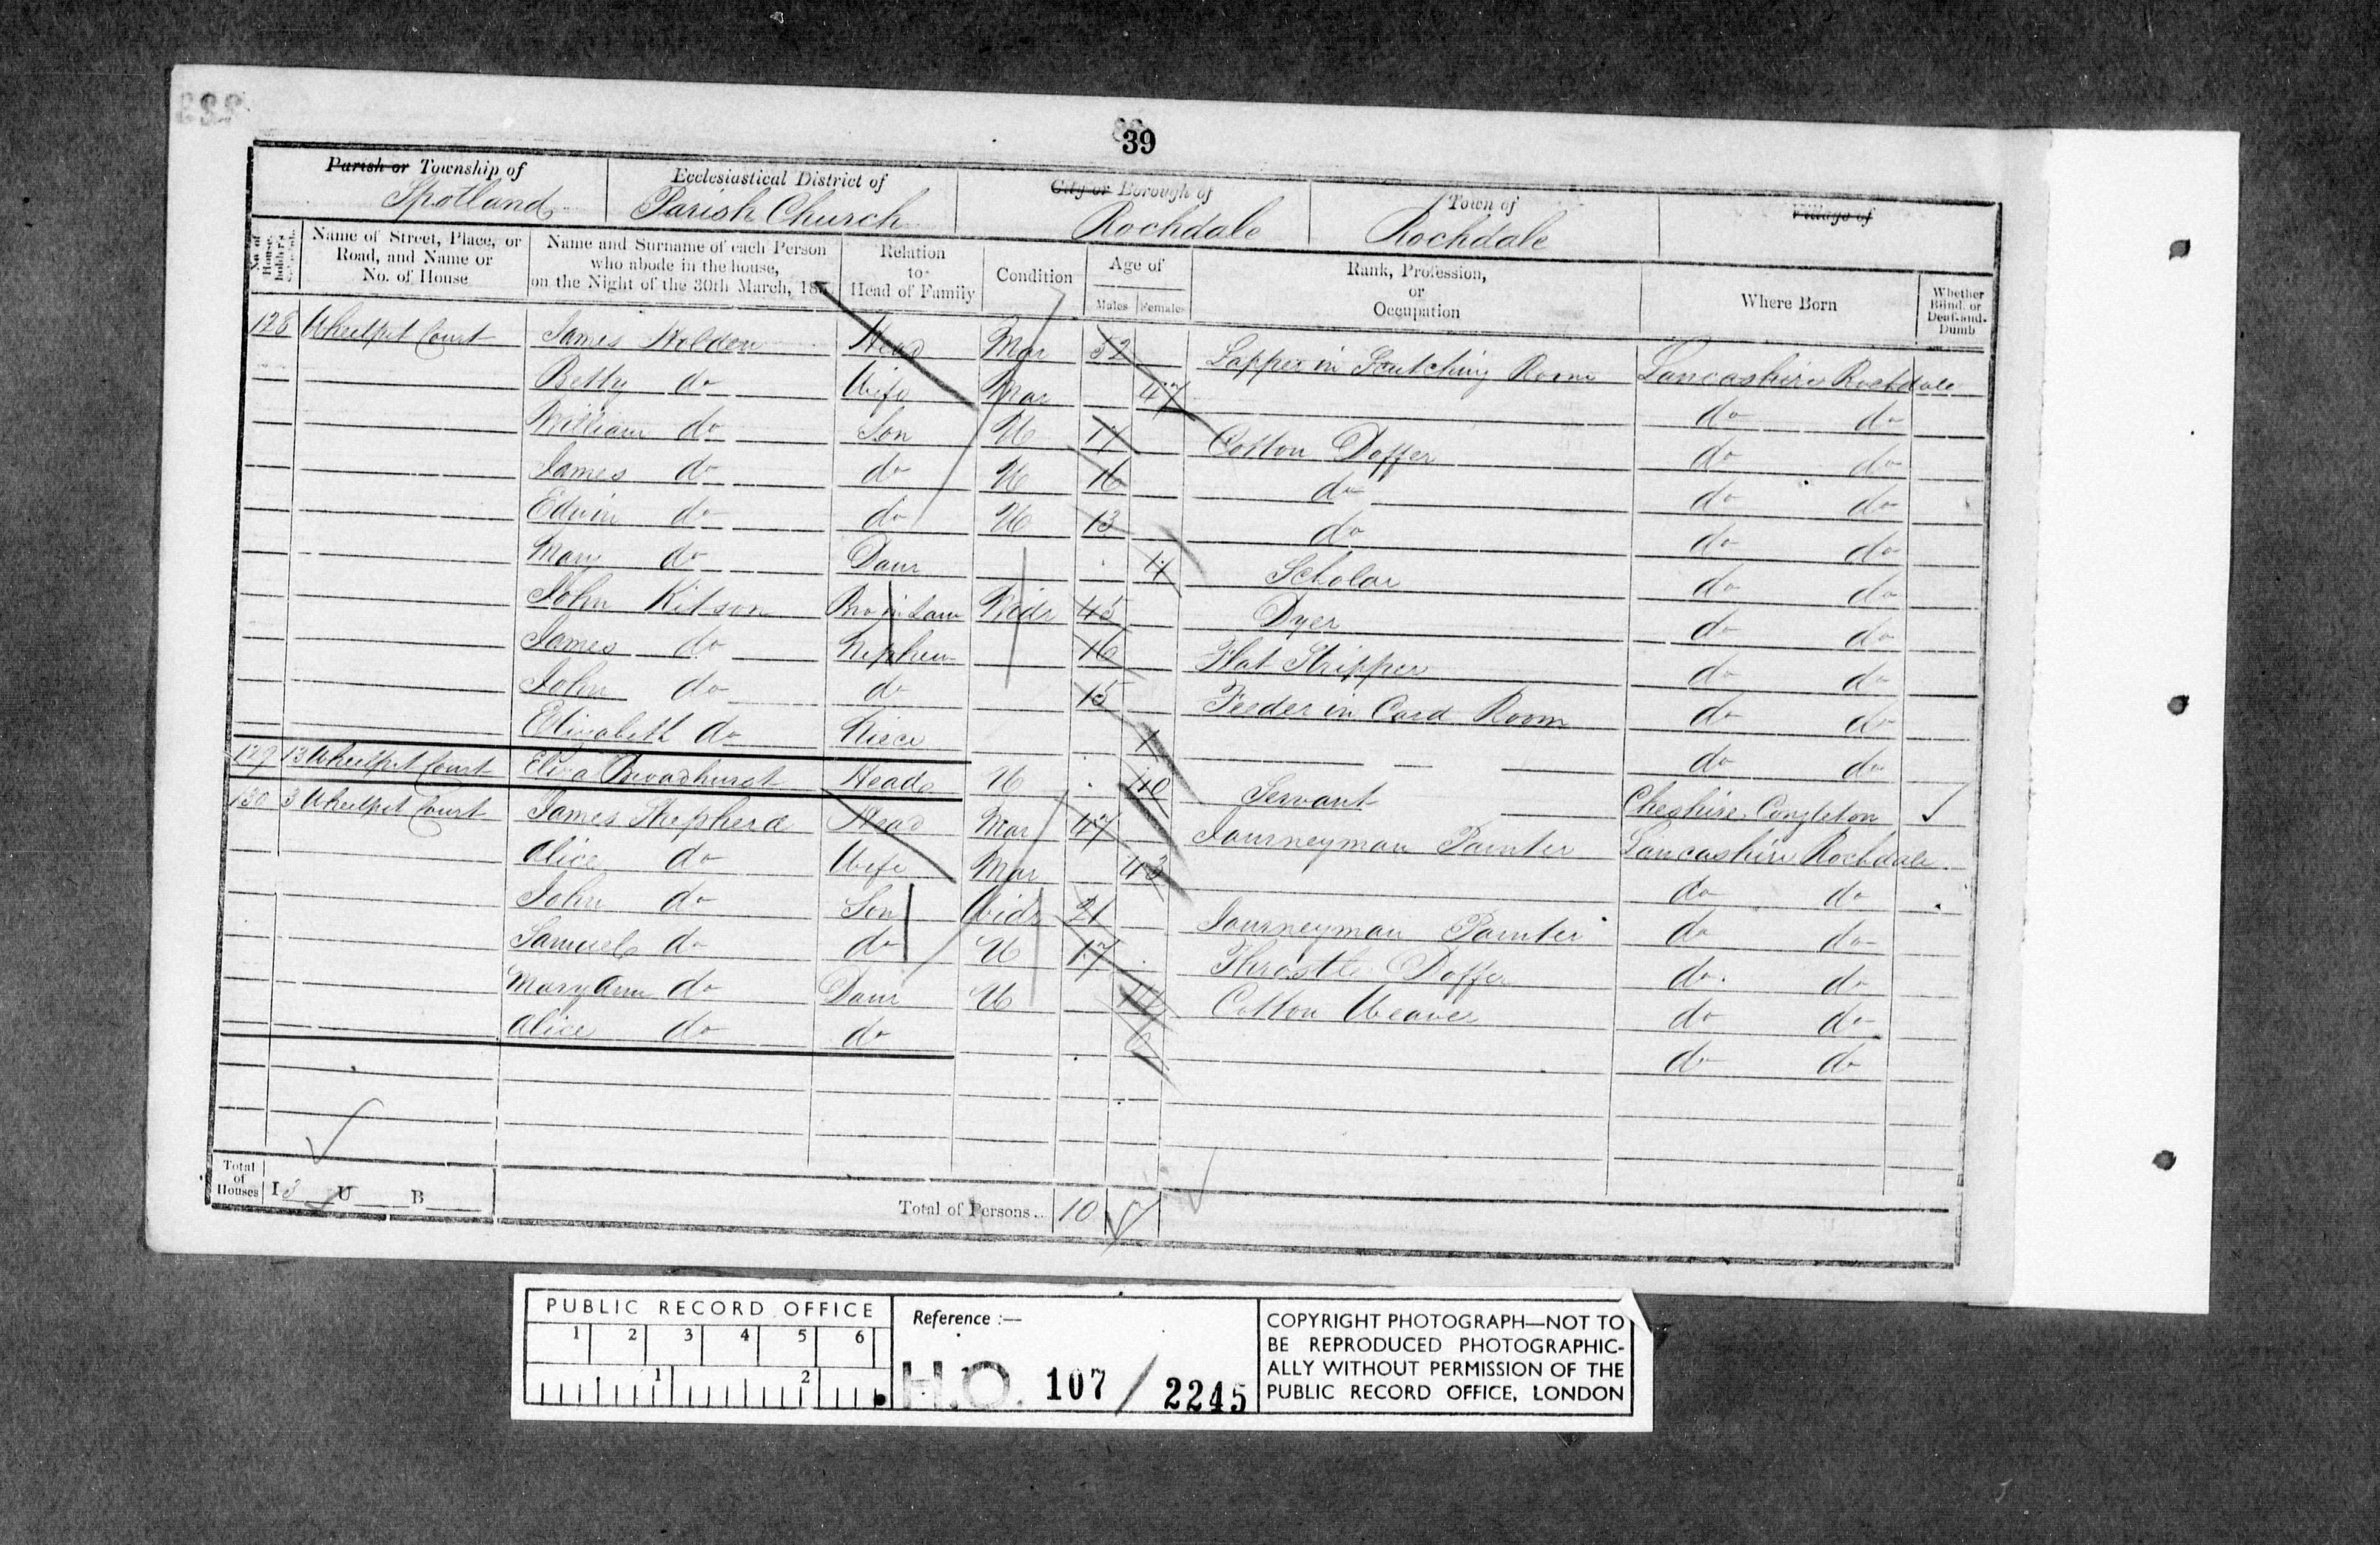 39
Parish or Township of Spotland
Ecclesiastical District of Parish Church
City or Borough of Rochdale
Town of Rochdale
Village of
No. of House-holder's Schedule
Name of Street, Place, or Road, and Name or No. of House
Name and Surname of each Person who abode in the house, on the Night of the 30th March,
Relation to Head of Family
Condition
Age of
Males Females
Rank, Profession, or Occupation
Where Born
Whether Blind, or Deaf-and-Dumb
128 Wheelpit Court James Holden Head Mar 52 Lapper in Scutching Room Lancashire Rochdale
Betty do Wife Mar 47 do do
William do Son U Cotton Doffer do do
James do do U 16 do do do
Edwin do do U 13 do do do
Mary do Daur Scholar do do
John Kitson Bro in Law Widr 45 Dyer do do
James do Nephew 16 Flat Stripper do do
John do do 15 Feeder in Card Room do do
Elizabeth do Niece 1 do do
129 13 Wheelpit Court Eliza Broadhurst Head U 40 Servant Cheshire Congleton
130 3 Wheelpit Court James Shepherd Head Mar 47 Journeyman Painter Lancashire Rochdale
Alice do Wife Mar 43 do do
John do Son Widr 21 Journeyman Painter do do
Samuel do do U 17 Throstle Doffer do do
Mary Ann do Daur U Cotton Weaver do do
Alice do do do do
Total of Houses I 3 U B
Total of Persons.. 10 7
PUBLIC RECORD OFFICE
1 2 3 4 5 6
1 2
Reference :—
H.O. 107 / 2245
COPYRIGHT PHOTOGRAPH—NOT TO
BE REPRODUCED PHOTOGRAPHIC-
ALLY WITHOUT PERMISSION OF THE
PUBLIC RECORD OFFICE, LONDON